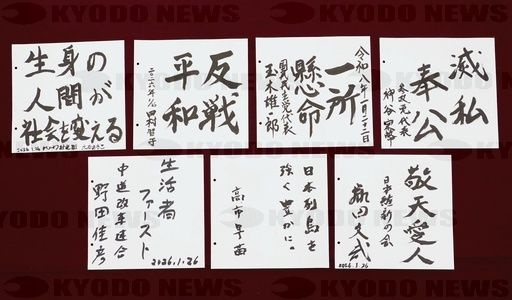 KYODO NEWS
生身の
人間が
社会を変える
反戦
平和
二〇二六年1/26 田村智子
令和八年一月二十二日
一所
懸命
国民民主党代表
玉木雄一郎
滅私
奉公
参政党代表
神谷宗幣
生活者
ファースト
中道改革連合
野田佳彦
2026.1.26
日本列島を
強く豊かに。
高市早苗
敬天愛人
日本維新の会
藤田文武
2026.1.26